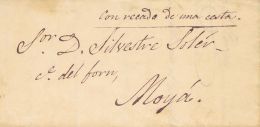 Con recado de una cesta.
Sor. D. Silvestre Solér
c. del forn,
Moyá.